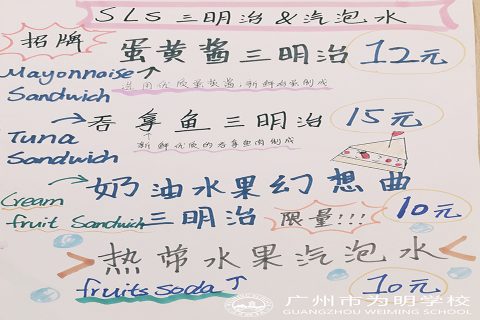 SLS 三明治 & 汽泡水
招牌 蛋黄酱三明治 12元
Mayonnaise
Sandwich
选用优质蛋黄酱,新鲜鸡蛋制成
吞拿鱼三明治 15元
Tuna
Sandwich
新鲜优质的吞拿鱼肉制成
奶油水果幻想曲
Cream
fruit Sandwich
三明治 限量!!! 10元
热带水果汽泡水
fruits soda 10元
广州市为明学校
GUANGZHOU WEIMING SCHOOL